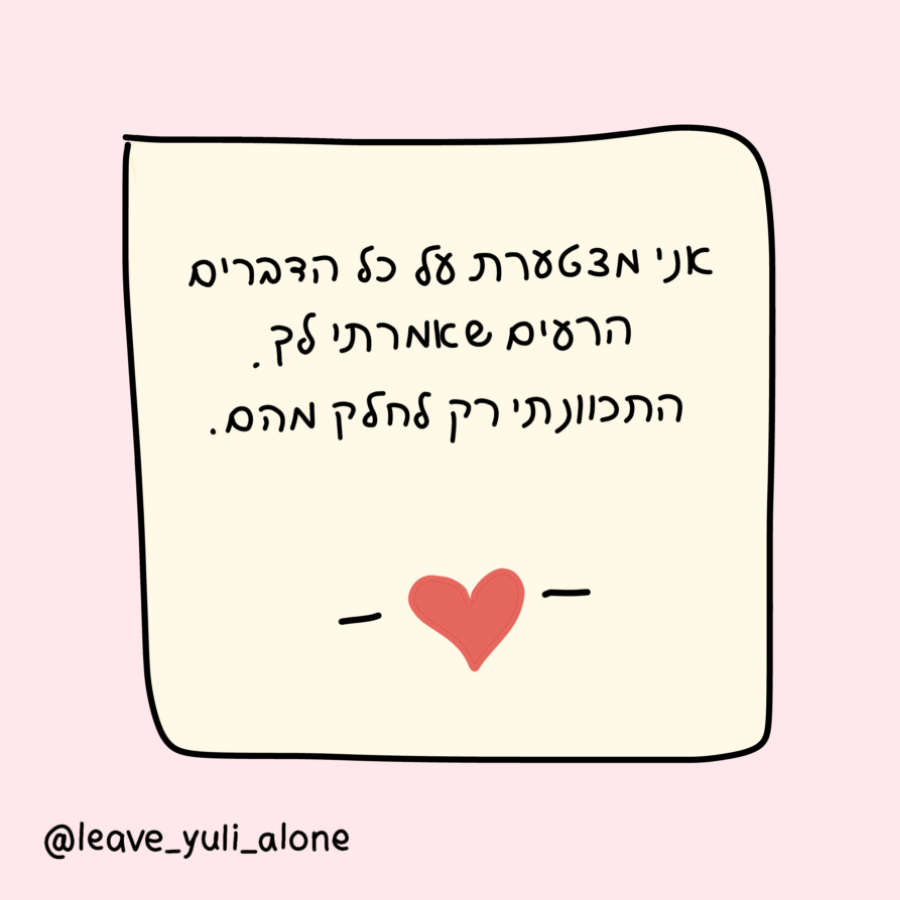 אני מצטערת על כל הדברים
הרעים שאמרתי לך.
התכוונתי רק לחלק מהם.
@leave_yuli_alone